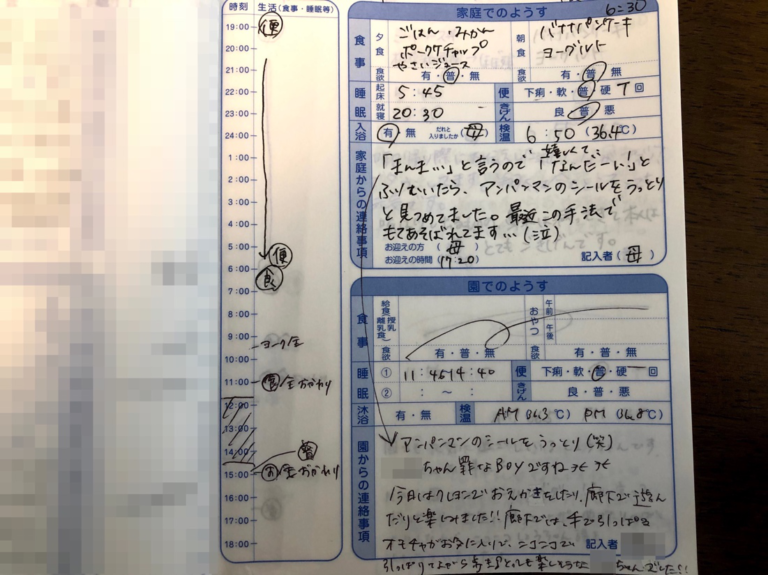 時刻 生活(食事・睡眠等)
19:00 便
20:00
21:00
22:00
23:00
24:00
1:00
2:00
3:00
4:00
5:00
便
6:00
食
7:00
8:00
9:00
ヨーグ 全
10:00
11:00 全おかわり
12:00
13:00
14:00
15:00 全おかわり
16:00
17:00
18:00
家庭でのようす
6:30
食事
夕食 ごはん・みかん
ポークケチャップ
やさいジュース
朝食 バナナパンケーキ
ヨーグルト
食欲 有・普・無
食欲 有・普・無
睡眠 起床 5:45 便 下痢・軟・普・硬 1回
就寝 20:30 きげん 良・普・悪
入浴 有 無 だれと入りましたか (母) 検温 6:50 (36.4℃)
家庭からの連絡事項
嬉しくて…
「まんま…」と言うので「なんだーい!」と
ふりむいたら、アンパンマンのシールをうっとり
と見つめてました。最近この手法で
もてあそばれてます…(泣)
お迎えの方 (母)
お迎えの時間 (17:20) 記入者(母)
園でのようす
食事 給食(授乳・離乳食) おやつ 午前 午後
食欲 有・普・無 食欲 有・普・無
睡眠 ① 11:45 14:40 便 下痢・軟・普・硬 回
② : ~ : きげん 良・普・悪
沐浴 有・無 検温 AM 36.3℃) PM 36.8℃)
園からの連絡事項
アンパンマンのシールをうっとり(笑)
ちゃん罪なBoyですね
今日はクレヨンでおえかきをしたり、廊下で遊ん
だりと楽しみました!!廊下では、手で引っぱる
オモチャがお気に入りで、ニコニコで 記入者
引っぱりながら歩き とても楽しそうな ちゃんでした!!